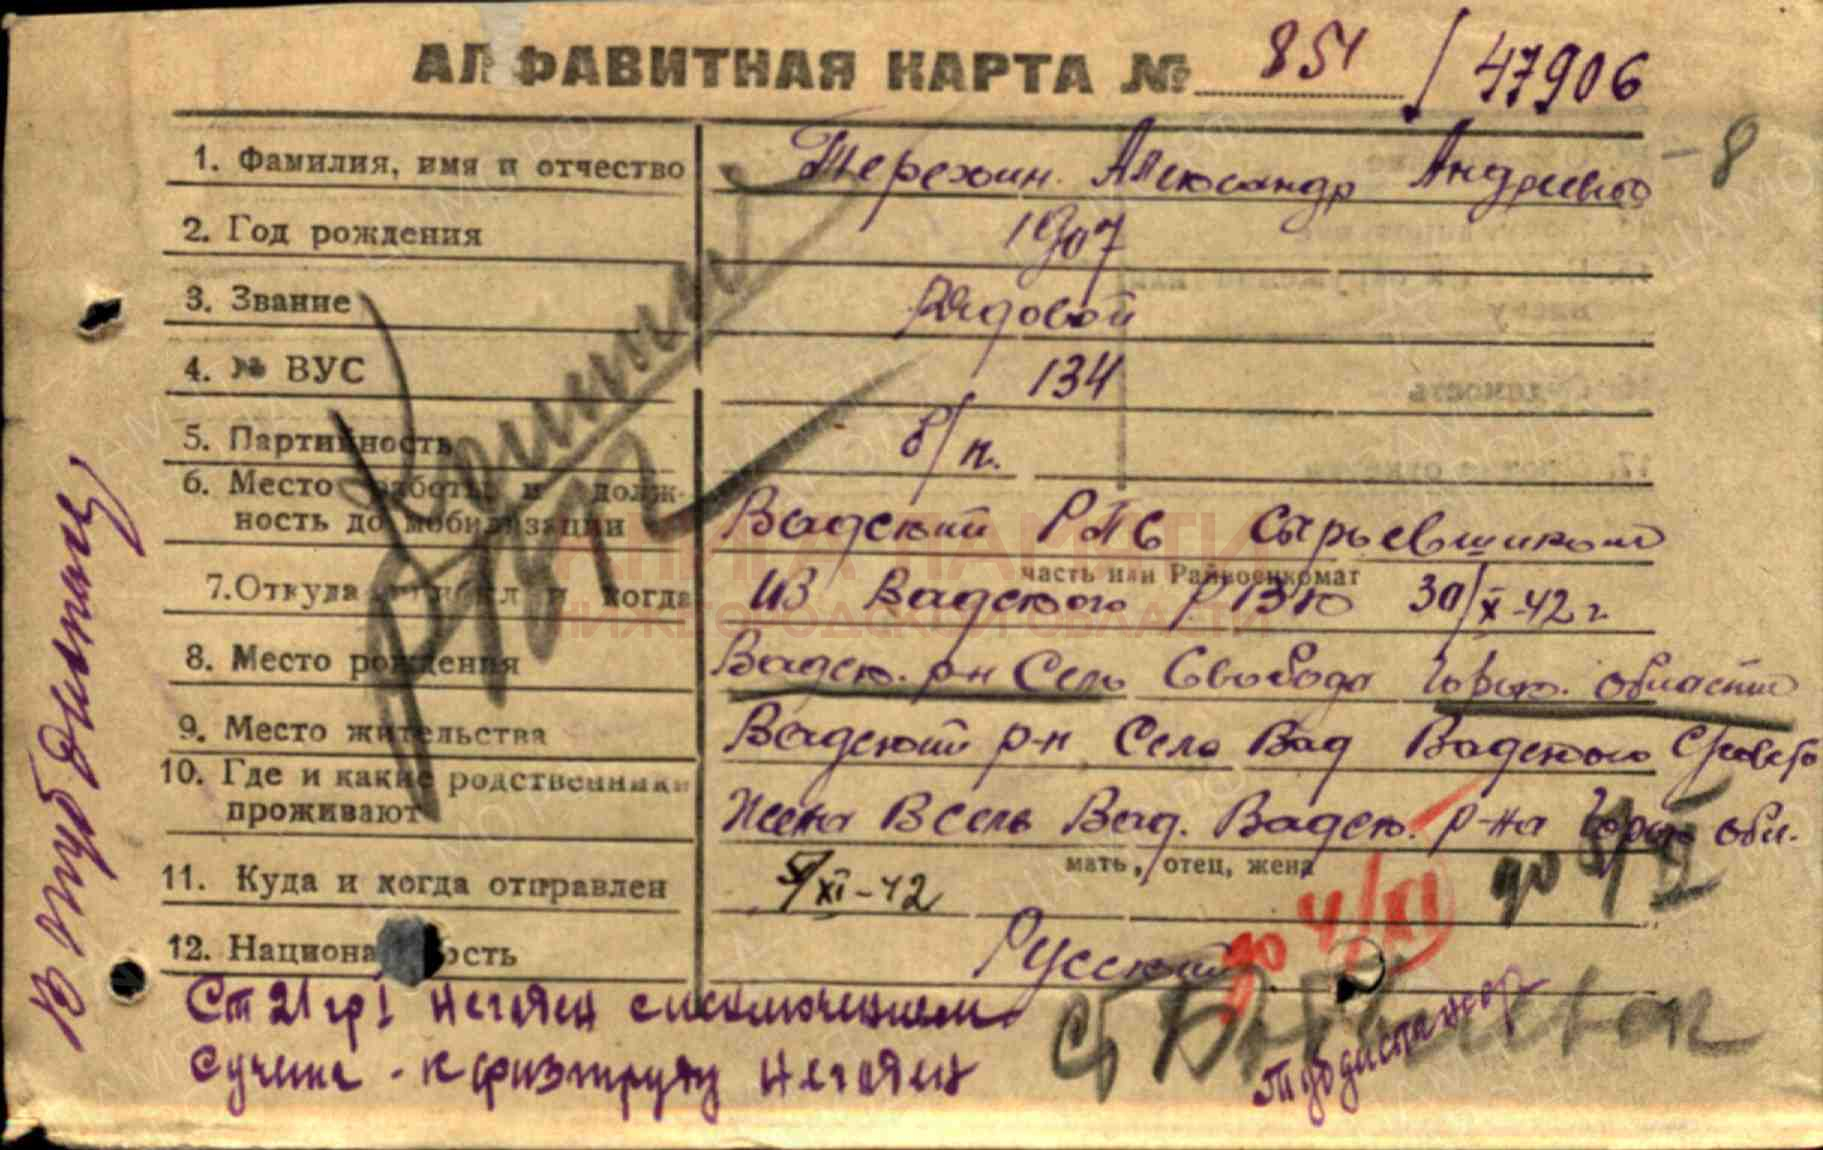 АЛФАВИТНАЯ КАРТА № 851 / 47906
1. Фамилия, имя и отчество Терехин Александр Андреевич - 8
2. Год рождения 1907
3. Звание Рядовой
4. № ВУС 134
5. Партийность б/п.
6. Место работы и долж-
ность до мобилизации Вадский РПС
КНИГА ПАМЯТИ
НИЖЕГОРОДСКОЙ ОБЛАСТИ
часть или Райвоенкомат
7. Откуда прибыл и когда из Вадского РВК 30/X-42 г
8. Место рождения Вадск. р-н Село Свобода Горьк. области
9. Место жительства Вадский р-н Село Вад Вадского С/совета
10. Где и какие родственники
проживают Жена В Село Вад. Вадск. р-на Горьк обл.
мать, отец, жена
11. Куда и когда отправлен 5/XI-42
до 4/XI
12. Национальность Русский
Ст 21 гр 1 Негоден с исключением
с учета - к физтруду негоден
В туб диспанс
Тубдиспансер